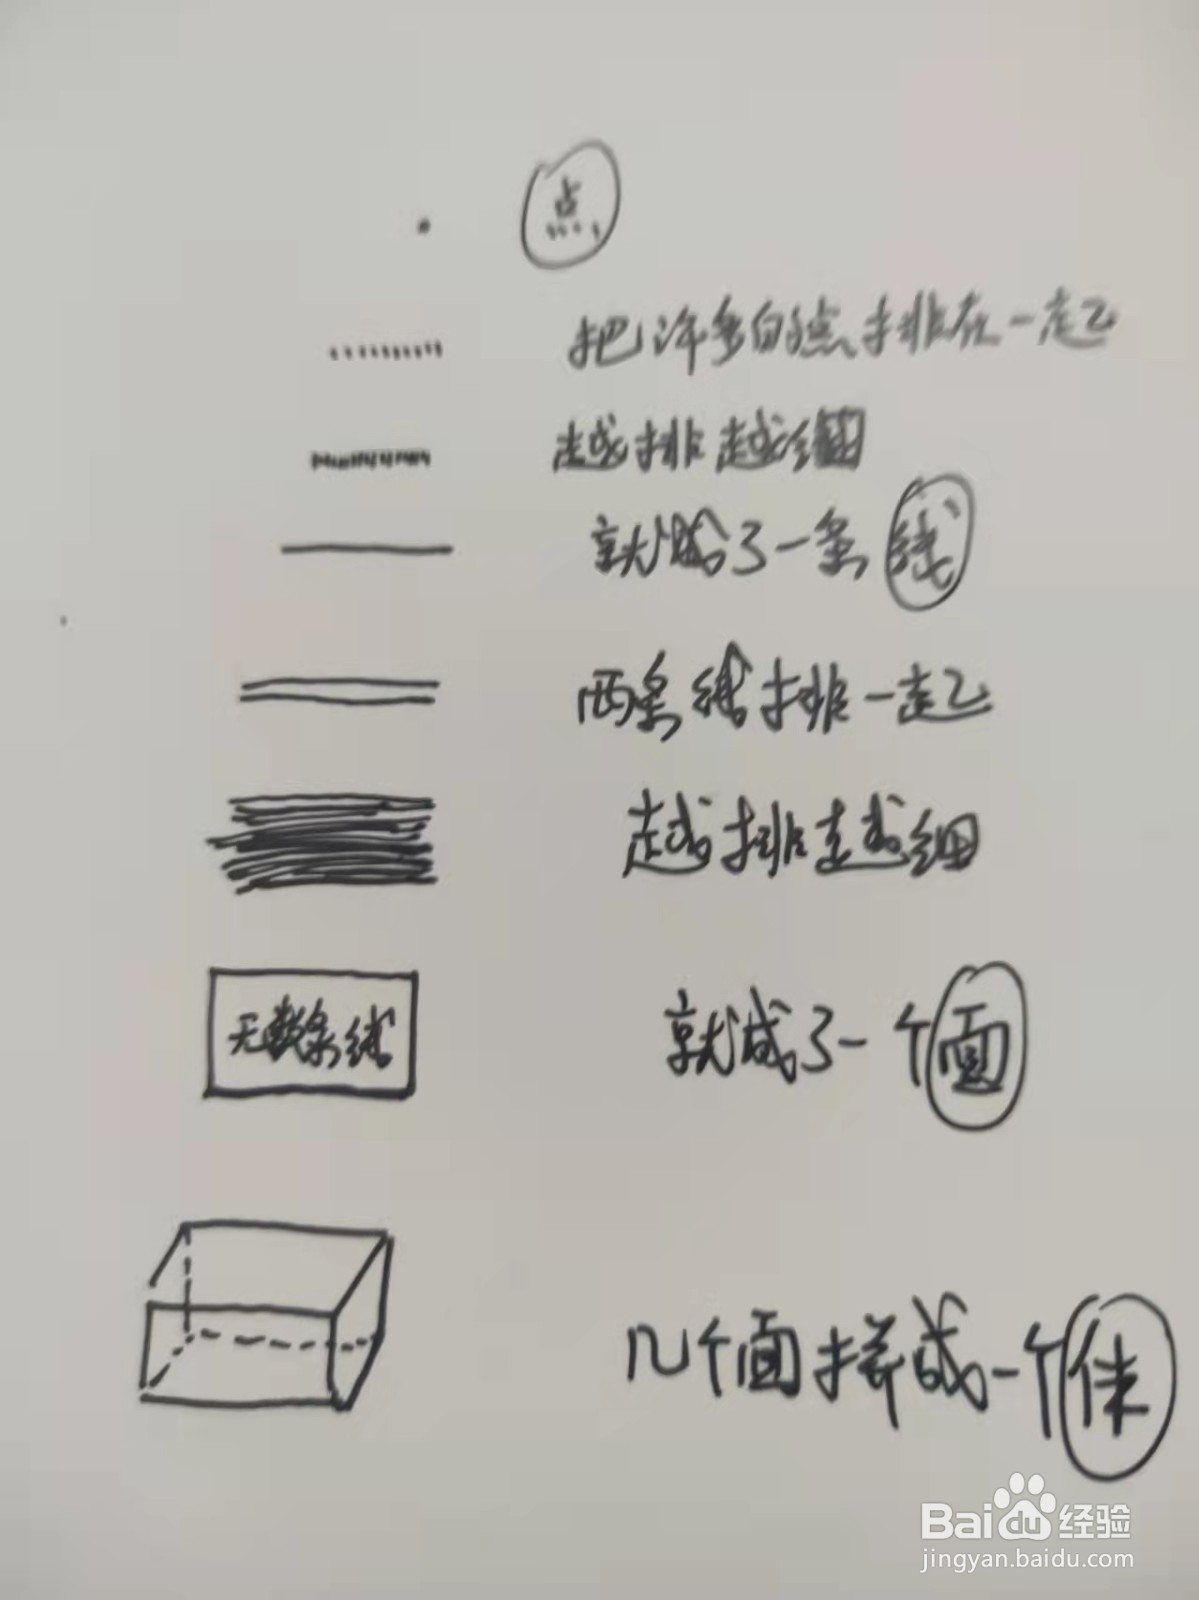 点
把许多的点排在一起
越排越细
就成了一条线
两条线排一起
越排越细
无数条线
就成了一个面
几个面拼成一个体
Baidu经验
jingyan.baidu.com